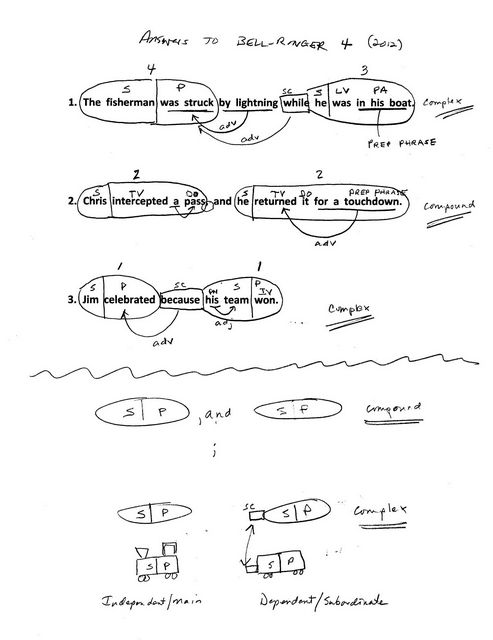 ANSWERS TO BELL-RINGER 4 (2012)
4 3
S P SC S LV PA
1. The fisherman was struck by lightning while he was in his boat. Complex
adv
adv
PREP PHRASE
2 2
S TV DO S TV DO PREP PHRASE
2. Chris intercepted a pass and he returned it for a touchdown. Compound
adv
1 1
S P SC PN S P IV
3. Jim celebrated because his team won.
adj
adv
Complex
S P , and S P Compound
;
SC
S P S P Complex
S P S P
Independent/Main Dependent/Subordinate